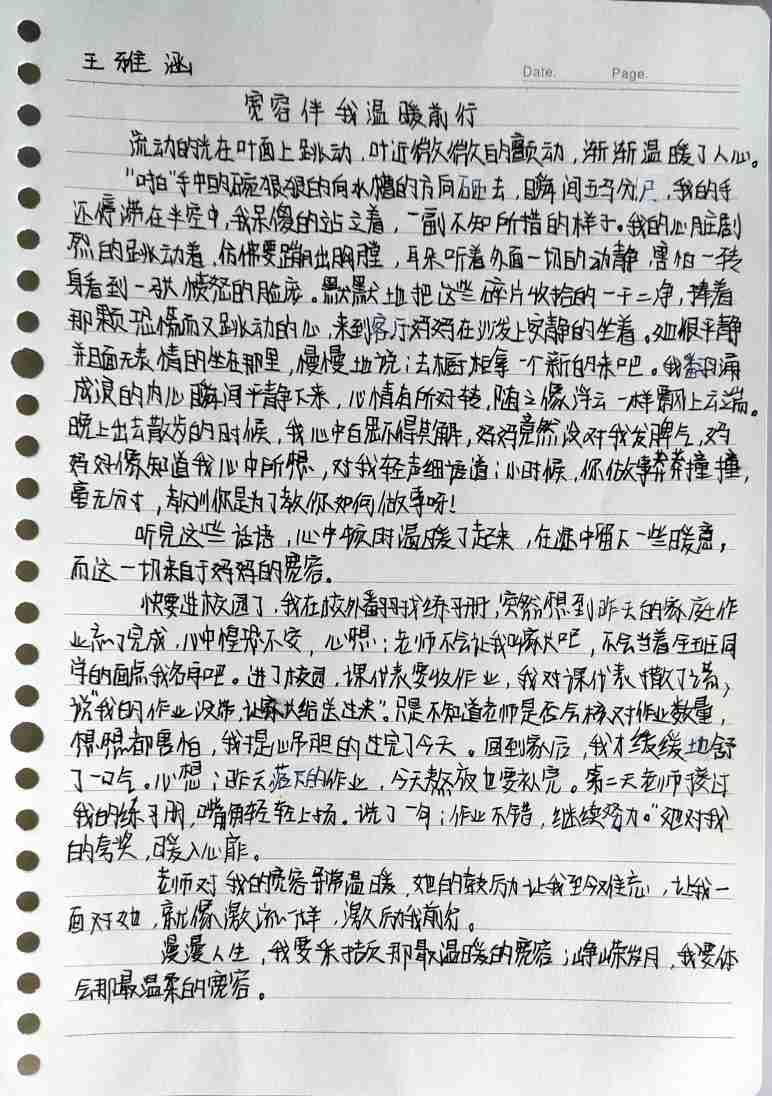 王雅涵
Date. Page.
宽容伴我温暖前行
流动的光在叶面上跳动,叶近微微的颤动,渐渐温暖了人心。
"啪"手中的碗狠狠的向水槽的方向砸去,瞬间五马分尸,我的手
还停滞在半空中,我呆傻的站立着,一副不知所措的样子。我的心脏剧
烈的跳动着,仿佛要蹦出胸膛,耳朵听着外面一切的动静,害怕一转
身看到一张愤怒的脸庞。默默地把这些碎片收拾的一干二净,捧着
那颗恐慌而又跳动的心,来到客厅妈妈在沙发上安静的坐着。她很平静
并且面无表情的坐在那里,慢慢地说:去橱柜拿一个新的来吧。我翻涌
成浪的内心瞬间平静下来,心情有所好转,随之像浮云一样飘上云端。
晚上出去散步的时候,我心中百思不得其解,妈妈竟然没对我发脾气,妈
妈好像知道我心中所想,对我轻声细语道:小时候,你做事莽莽撞撞,
毫无分寸,教训你是为了教你如何做事呀!
听见这些话语,心中顿时温暖了起来,在心中留下一些暖意,
而这一切来自于妈妈的宽容。
快要进校园了,我在校外翻找练习册,突然想到昨天的家庭作
业忘了完成,心中惶恐不安,心想:老师不会让我叫家长吧,不会当着全班同
学的面点我名字吧。进了校园,课代表要收作业,我对课代表撒了谎,
说"我的作业没带,让家长给送过来"。只是不知道老师是否会核对作业数量,
想想都害怕,我提心吊胆的过完了今天。回到家后,我才缓缓地舒
了一口气。心想:昨天落下的作业,今天熬夜也要补完。第二天老师接过
我的练习册,嘴角轻轻上扬。说了一句:作业不错,继续努力。"她对我
的夸奖,暖入心扉。
老师对我的宽容非常温暖,她的鼓励让我至今难忘,让我一
面对她,就像激流一样,激励我前行。
漫漫人生,我要采撷那最温暖的宽容;峥嵘岁月,我要体
会那最温柔的宽容。